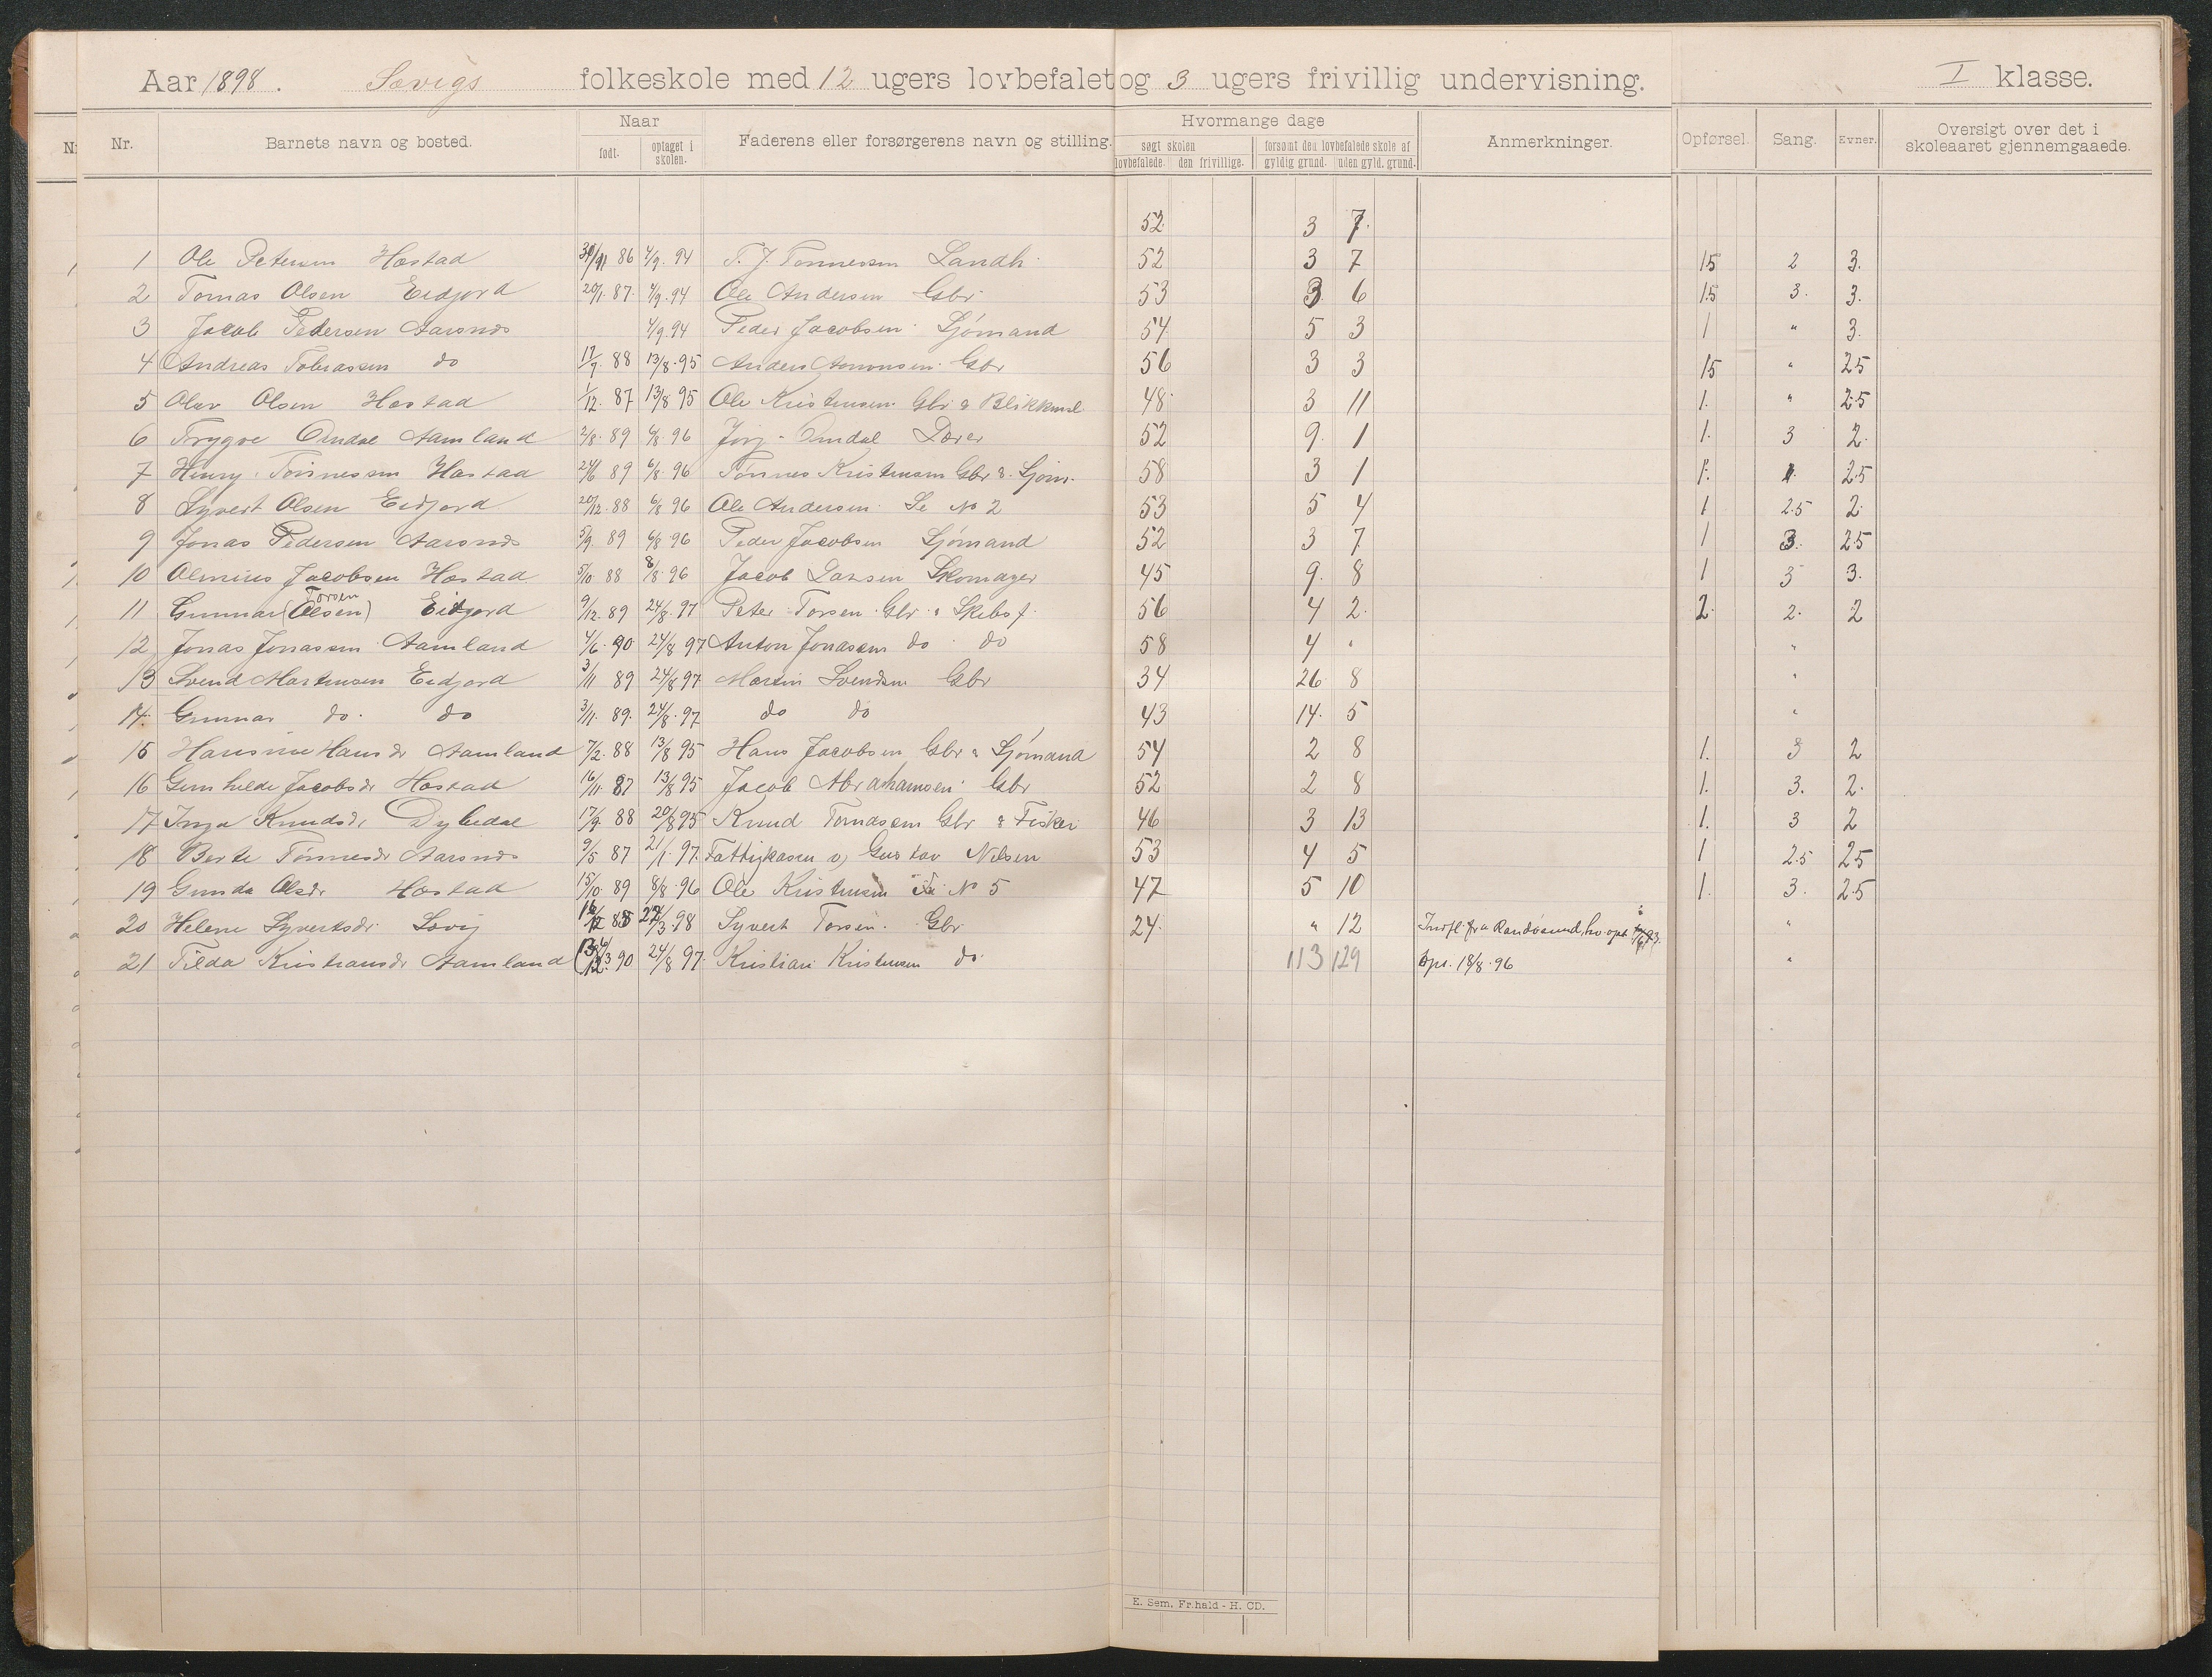 Aar 1898. Søvigs folkeskole med 12 ugers lovbefalet og 3 ugers frivillig undervisning. I klasse.
Nr. Barnets navn og bosted. Naar født. optaget i skolen. Faderens eller forsørgerens navn og stilling. Hvormange dage søgt skolen lovbefalede. den frivillige. forsømt den lovbefalede skole af gyldig grund. uden gyld. grund. Anmerkninger. Opførsel. Sang. Evner. Oversigt over det i skoleaaret gjennemgaaede.
52 3 7.
1 Ole Petersen Hæstad 86 4/9. 94 T. J. Tønnessen Landh. 52 3 7 15 2 3.
2 Tomas Olsen Eidjord 20/1. 87. 4/9. 94 Ole Andersen Gbr. 53 3 6 15 3. 3.
3 Jacob Pedersen Aarsnes 4/9. 94 Peder Jacobsen Sjömand 54 5 3 1 " 3.
4 Andreas Tobiassen do 17/9. 88 13/8. 95 Anders Gbr 56 3 3 15 " 25
5 Olav Olsen Hæstad 1/12. 87 13/8 95 Ole Kristensen Gbr & Blikkensl 48. 3 11 1. " 2.5
6 Trygve Omdal Aamland 2/8. 89 6/8. 96 Jörg. Omdal Lærer 52 9. 1 1. 3 2.
7 Henry Tønnessen Hæstad 24/6 89 6/8. 96 Tønnes Kristensen Gbr & Sjöm. 58 3 1 1. 25
8 Syvert Olsen Eidjord 20/12. 88 6/8 96 Ole Andersen. Se No 2 53 5 4 1 2.5 2.
9 Jonas Pedersen Aarsnes 5/9. 89 6/8. 96 Peder Jacobsen Sjömand 52 3 7 1 3. 25
10 Jacobsen Hæstad 5/10 88 8/8. 96 Jacob Larsen Skomager 45 9. 8 1 3 3.
11 Gunnar (Olsen) Torsen Eidjord 9/12. 89 24/8. 97 Peter Torsen. Gbr. & Skibsf. 56 4 2. 2. 2. 2
12 Jonas Jonassen Aamland 4/6. 90 24/8 97 Anton Jonassen do do 58 4 " "
13 Svend Martensen Eidjord 3/11 89 24/8 97 Martin Svendsen Gbr 34 26 8 "
14. Gunnar do. do 3/11. 89. 24/8. 97 do do 43 14. 5 "
15 Hansine Hansdr Aamland 7/2. 88 13/8 95 Hans Jacobsen Gbr & Sjömand 54 2 8 1. 3 2
16 Gunhilde Jacobsdr Hæstad 16/11. 87 13/8 95 Jacob Abrahamsen Gbr 52 2 8 1. 3. 2.
17 Inga Knudsdr Dybedal 17/9. 88 20/8 95 Knud Tomassen Gbr & Fisker 46 3 13 1. 3 2
18 Berte Tønnesdr Aarsnes 9/5 87 21/1. 97. Fattigkassen v) Gustav Nilsen 53 4 5 1 2.5 25
19 Gunda Olsdr Hæstad 15/10. 89 8/8. 96 Ole Kristensen No 5 47 5 10 1. 3. 25
20 Helene Syvertsdr Søvig 22/3. 98 Syvert Torsen. Gbr 24. " 12 Indfl. fra Randøsund, hvor opt. "
21 Tilda Kristiansdr Aamland 90 24/8 97. Kristian Kristensen do. 113 129 18/8. 96 "
E. Sem, Fr.hald - H. CD.